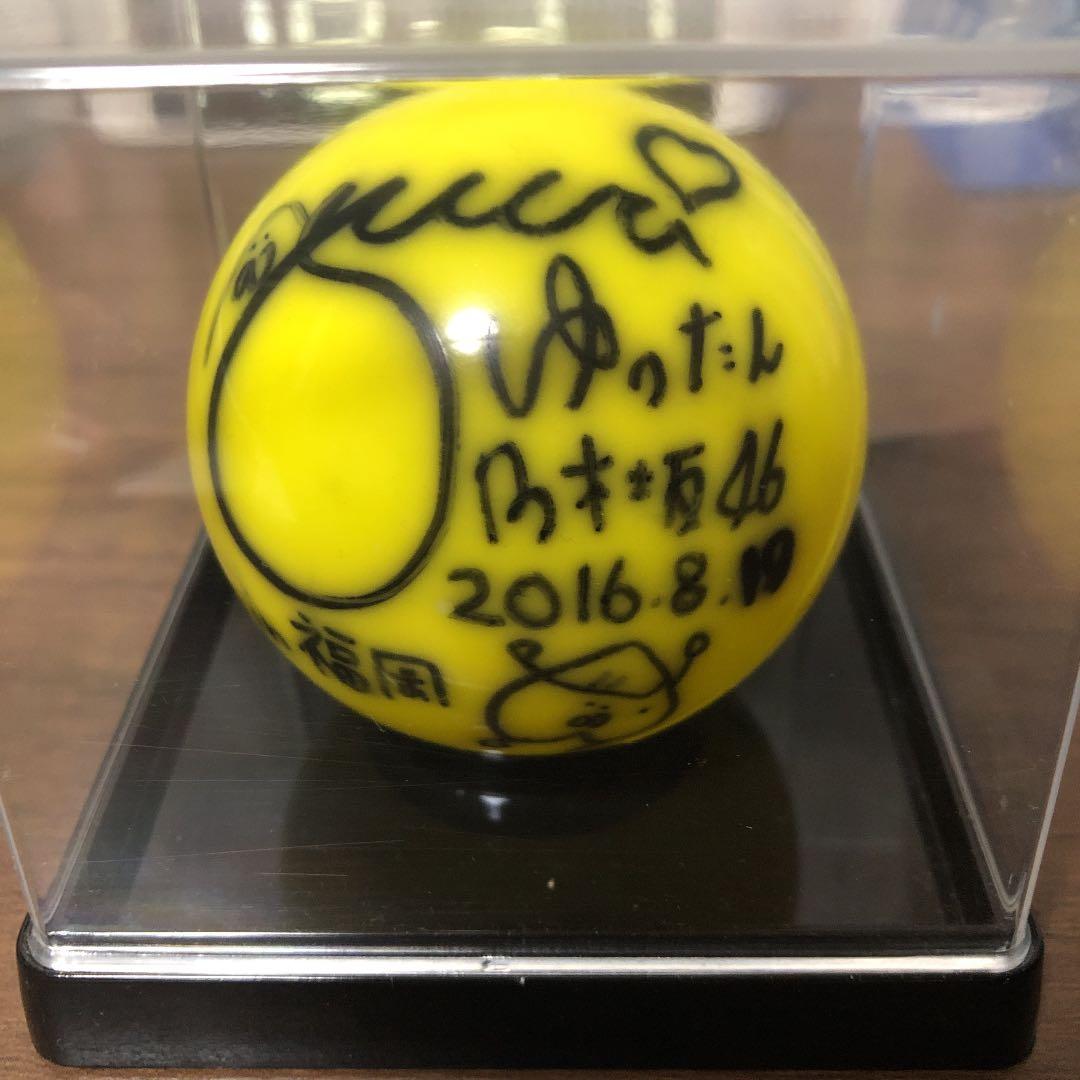 ゆったん
乃木坂46
2016.8.10
福岡